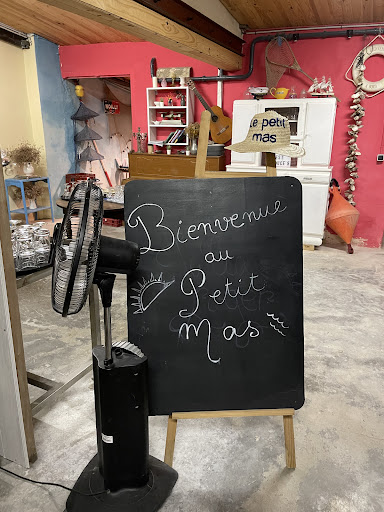 Le petit
mas
Bienvenue
au
Petit
Mas